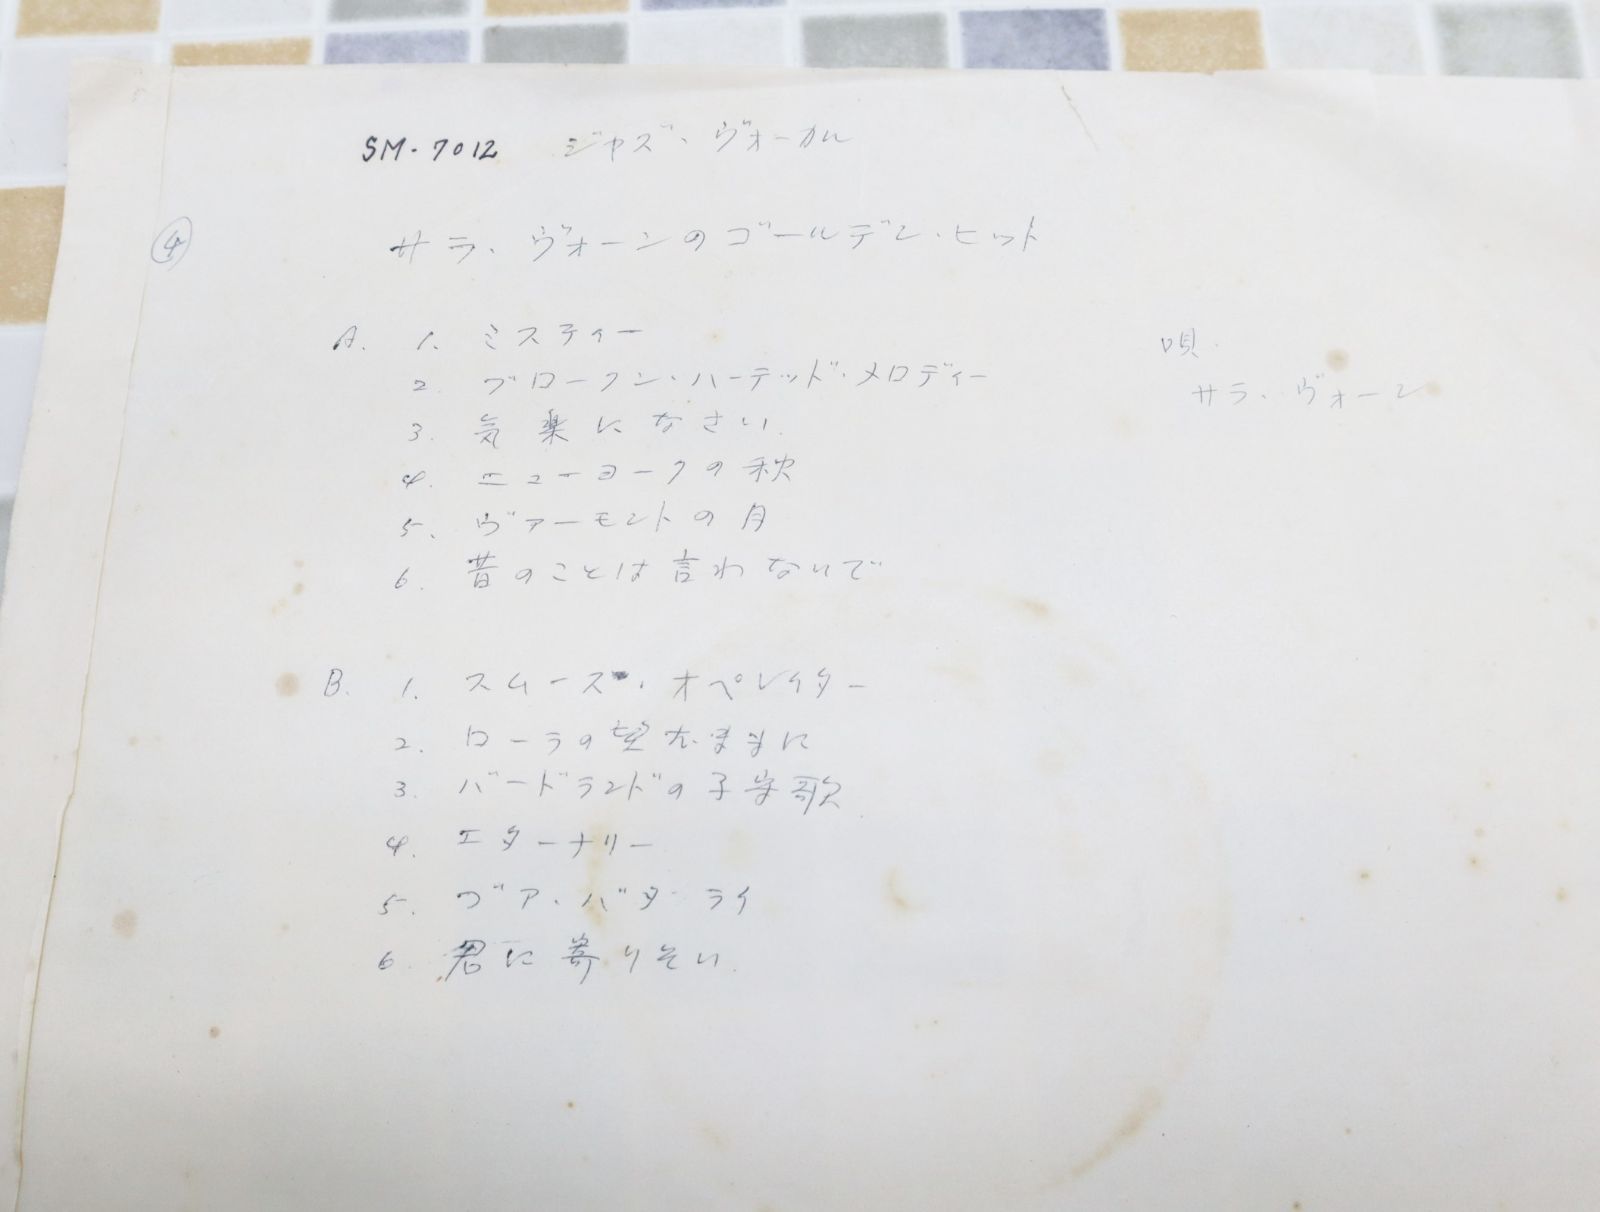 SM-7012 ジャズ・ヴォーカル
④
サラ・ヴォーンのゴールデン・ヒット
A. 1. ミスティー
2. ブロークン・ハーテッド・メロディー
3. 気楽になさい.
4. ニューヨークの秋
5. ヴァーモントの月
6. 昔のことは言わないで
唄.
サラ・ヴォーン
B. 1. スムース・オペレイター
2. ローラの望むまゝに
3. バードランドの子守歌
4. エターナリー
5. ヴア・バダ ライ
6. 君に寄りそい.